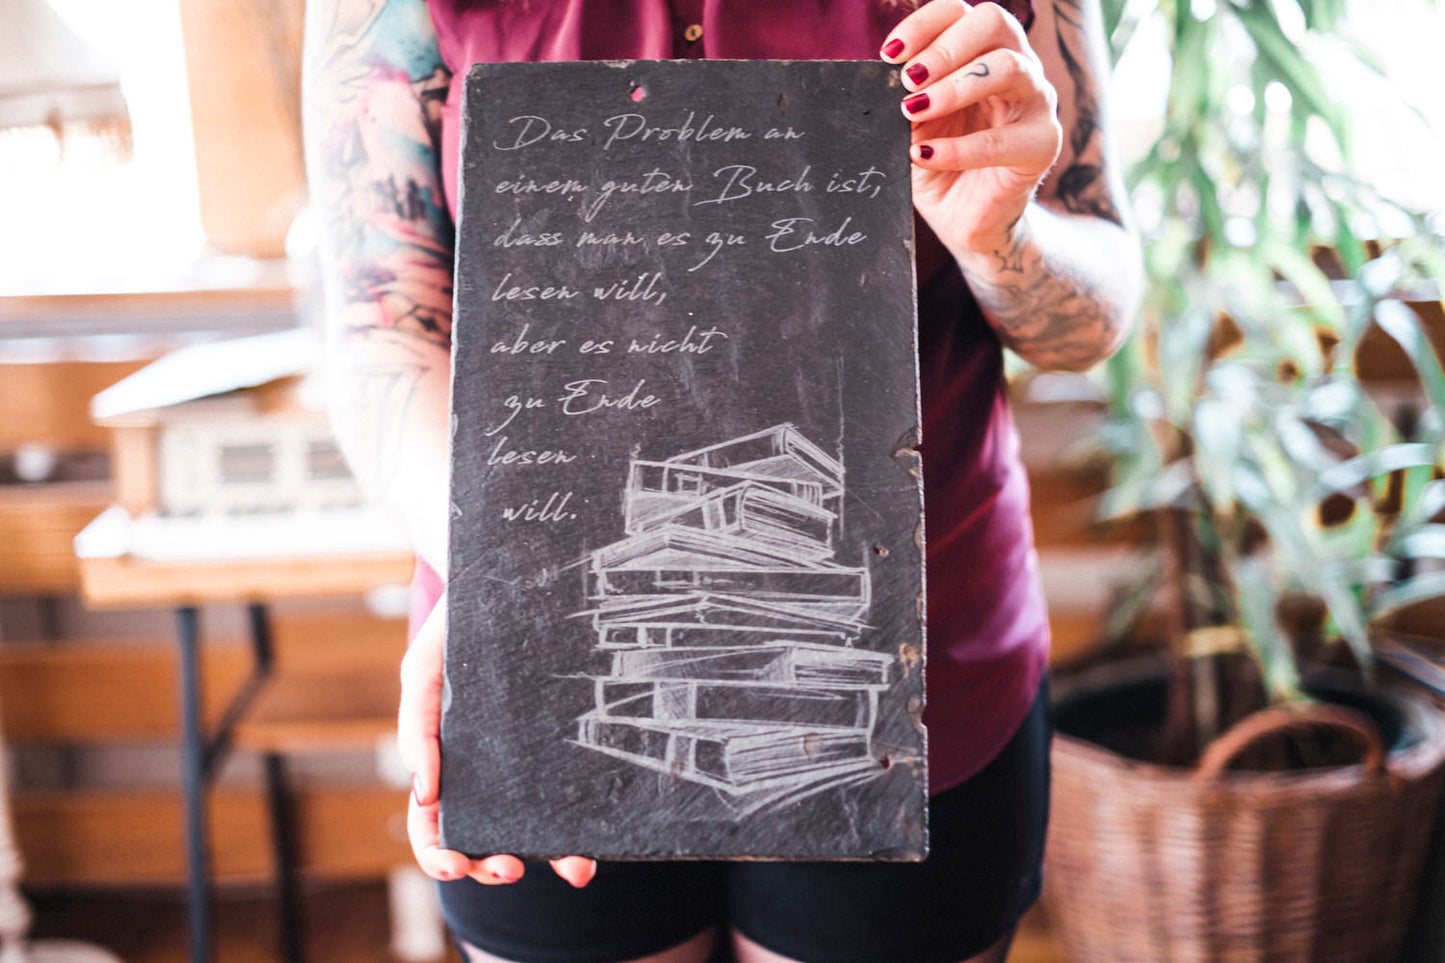 Das Problem an
einem guten Buch ist,
dass man es zu Ende
lesen will,
aber es nicht
zu Ende
lesen
will.